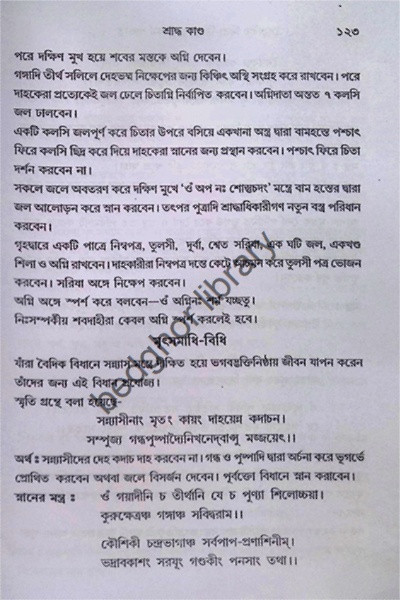 শ্রাদ্ধ কাণ্ড ১২৩
পরে দক্ষিণ মুখ হয়ে শবের মস্তকে অগ্নি দেবেন।
গঙ্গাদি তীর্থ সলিলে দেহভস্ম নিক্ষেপের জন্য কিঞ্চিৎ অস্থি সংগ্রহ করে রাখবেন। পরে
দাহকেরা প্রত্যেকেই জল ঢেলে চিতাগ্নি নির্বাপিত করবেন। অগ্নিদাতা অন্তত ৭ কলসি
জল ঢালবেন।
একটি কলসি জলপূর্ণ করে চিতার উপরে বসিয়ে একখানা অস্ত্র দ্বারা বামহস্তে পশ্চাৎ
ফিরে কলসি ছিদ্র করে দিয়ে দাহকেরা স্নানের জন্য প্রস্থান করবেন। পশ্চাৎ ফিরে চিতা
দর্শন করবেন না।
সকলে জলে অবতরণ করে দক্ষিণ মুখে ‘ওঁ অপ নঃ শোশুচদং’ মন্ত্রে বাম হস্তের দ্বারা
জল আলোড়ন করে স্নান করবেন। তৎপর পুত্রাদি শ্রাদ্ধাধিকারীগণ নতুন বস্ত্র পরিধান
করবেন।
গৃহদ্বারে একটি পাত্রে নিম্বপত্র, তুলসী, দূর্বা, শ্বেত সরিষা, এক ঘটি জল, একখণ্ড
শিলা ও অগ্নি রাখবেন। দাহকারীরা নিম্বপত্র দন্তে কেটে আচমন করে তুলসী পত্র ভোজন
করবেন। সরিষা অঙ্গে নিক্ষেপ করবেন।
অগ্নি অঙ্গে স্পর্শ করে বলবেন—ওঁ অগ্নিনঃ শর্ম যচ্ছতু।
নিঃসম্পর্কীয় শবদাহীরা কেবল অগ্নি স্পর্শ করলেই হবে।
মৃৎসমাধি-বিধি
যাঁরা বৈদিক বিধানে সন্ন্যাস মন্ত্রে দীক্ষিত হয়ে ভগবদ্ভক্তিনিষ্ঠায় জীবন যাপন করেন
তাঁদের জন্য এই বিধান প্রযোজ্য।
স্মৃতি গ্রন্থে বলা হয়েছে-
সন্ন্যাসীনাং মৃতং কায়ং দাহয়েন্ন কদাচন।
সম্পূজ্য গন্ধপুষ্পাদ্যৈনিখনেদ্বাপ্সু মজ্জয়েৎ।।
অর্থ ঃ সন্ন্যাসীদের দেহ কদাচ দাহ করবেন না। গন্ধ ও পুষ্পাদি দ্বারা অর্চনা করে ভূগর্ভে
প্রোথিত করবেন অথবা জলে বিসর্জন দেবেন। পূর্বক্তো বিধানে স্নান করাবেন।
স্নানের মন্ত্র ঃ ওঁ গয়াদীনি চ তীর্থানি যে চ পুণ্যা শিলোচ্চয়া।
কুরুক্ষেত্রঞ্চ গঙ্গাঞ্চ সরিদ্বরাম।।
কৌশিকী চন্দ্রভাগাঞ্চ সর্বপাপ-প্রণাশিনীম্।
ভদ্রাবকাশং সরযূং গণ্ডকীং পনসাং তথা।।
bedghor library